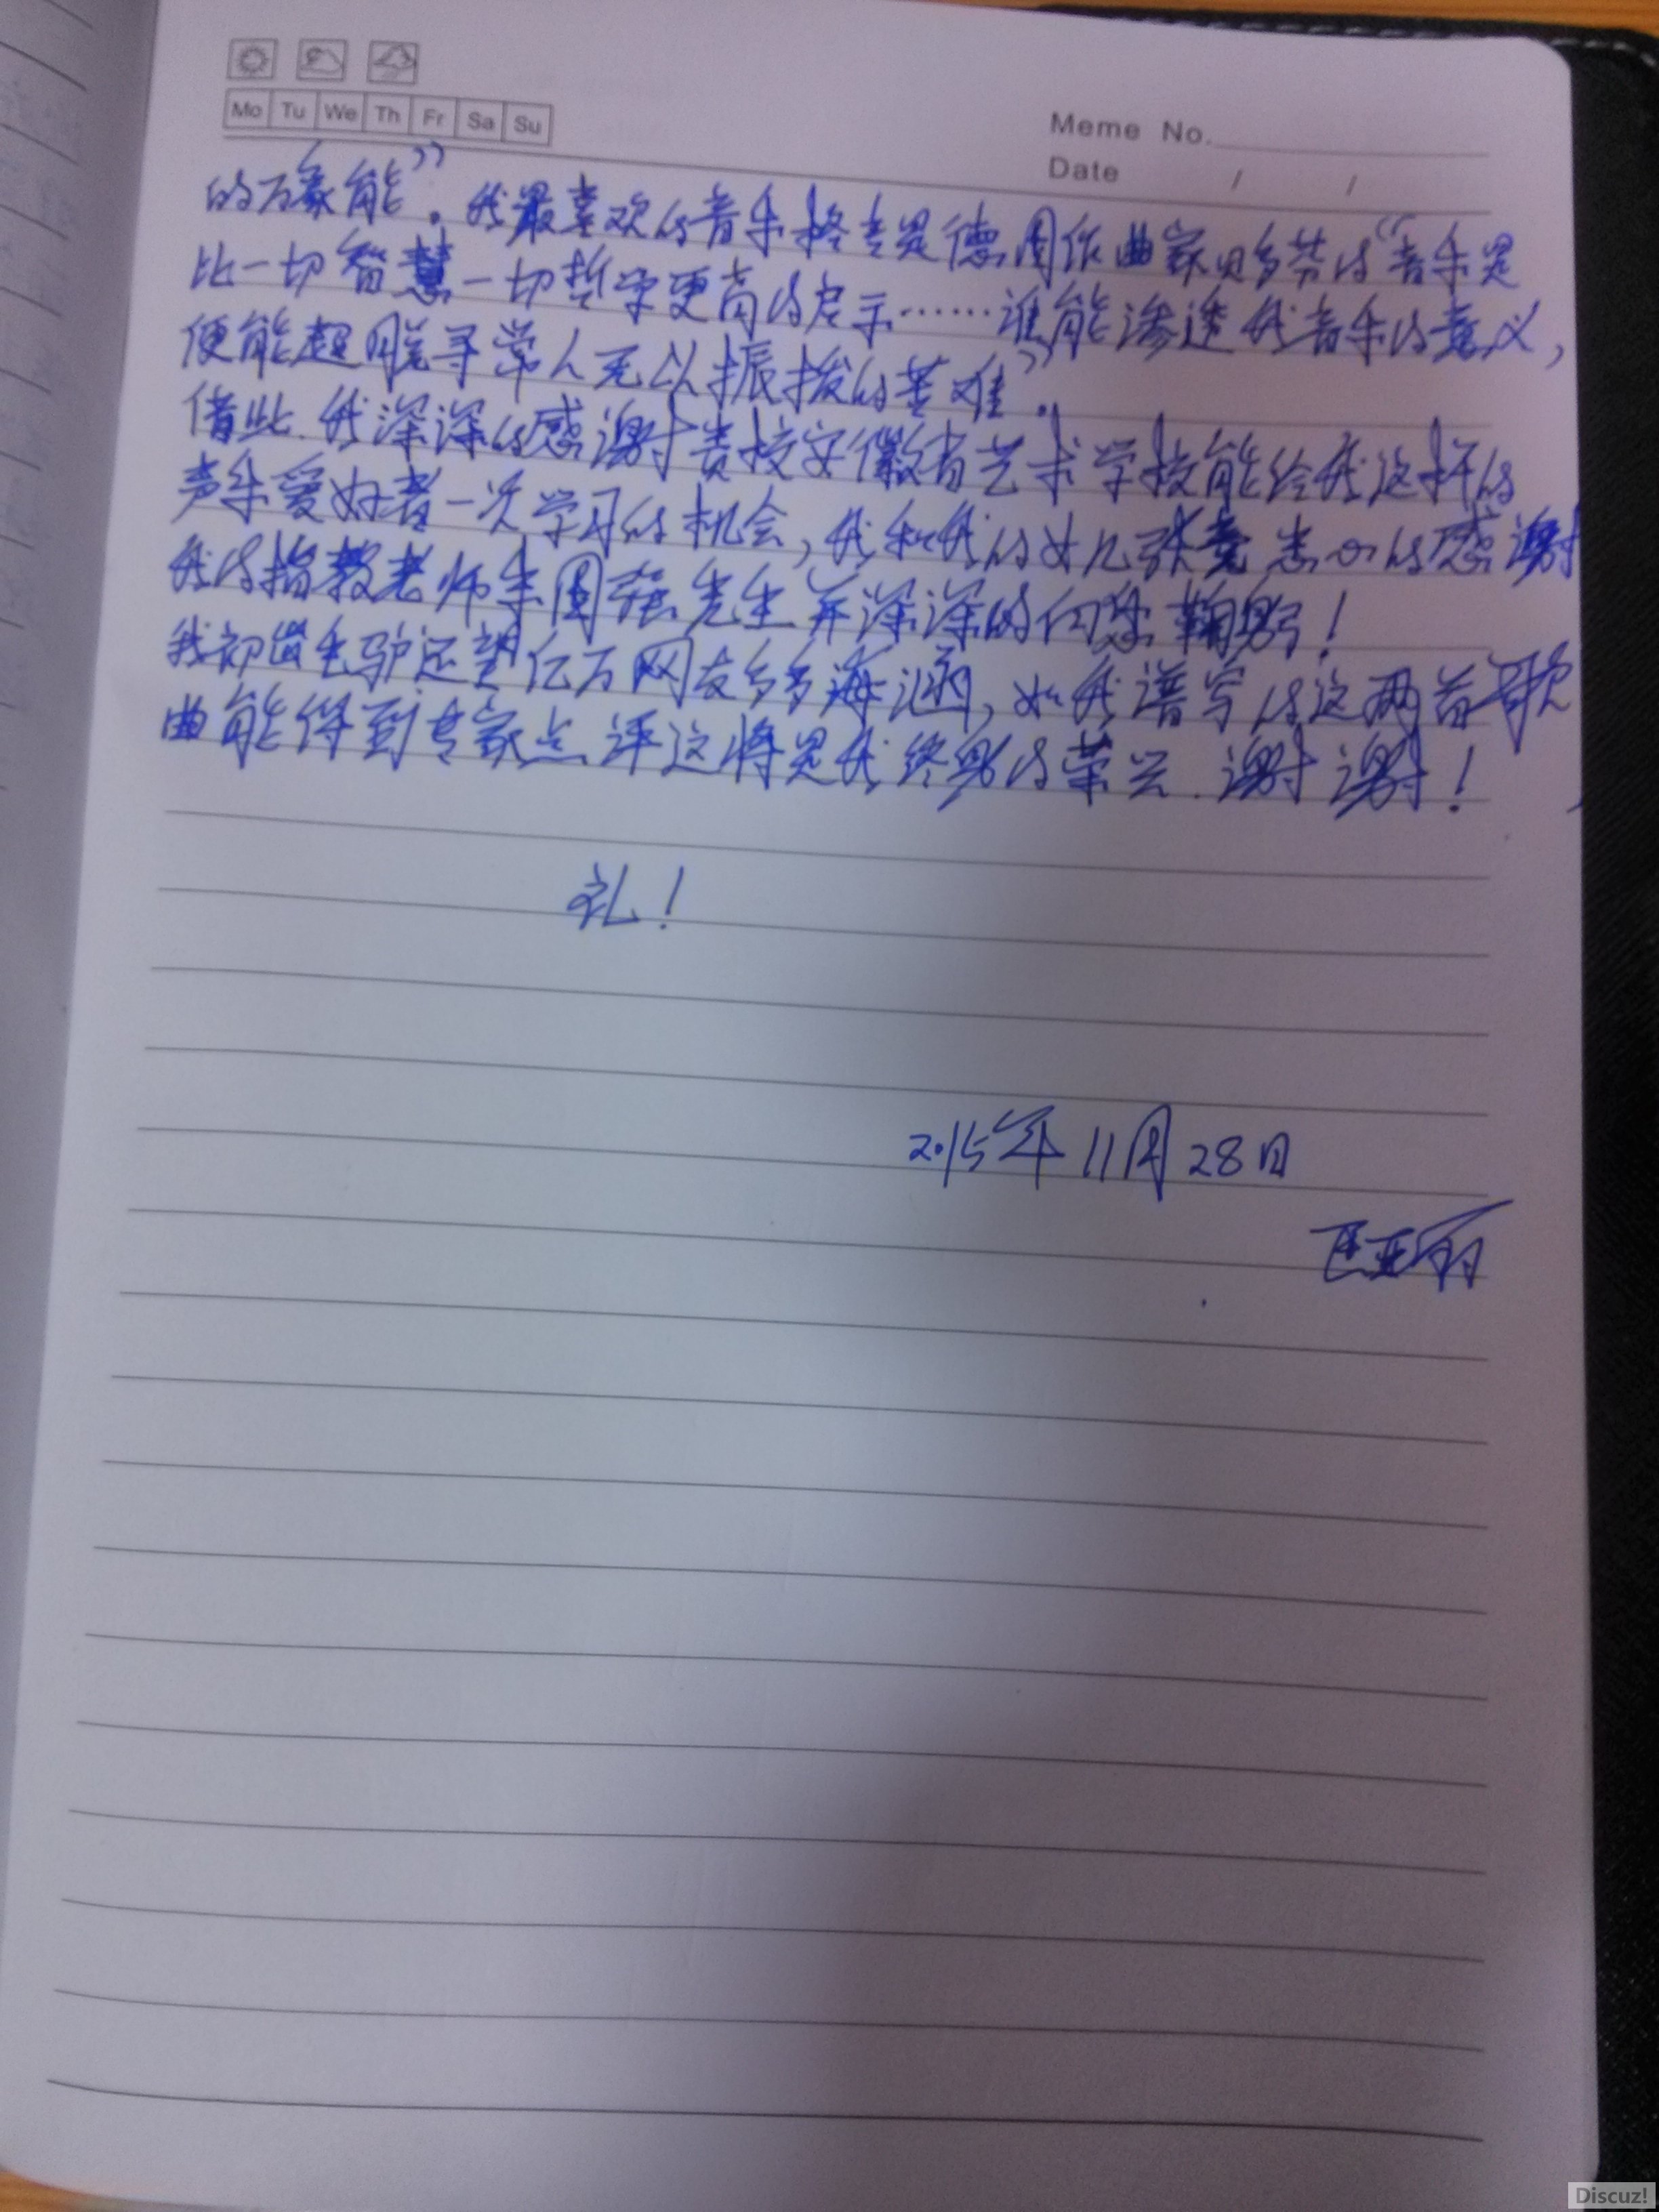 Mo Tu We Th Fr Sa Su
Meme No.
Date / /
的万象能”。我最喜欢的音乐格言是德国作曲家贝多芬的“音乐是
比一切智慧一切哲学更高的启示……谁能渗透我音乐的意义,
便能超脱寻常人无以振拨的苦难”。
借此.我深深的感谢贵校安徽省艺术学校能给我这样的
声乐爱好者一次学习的机会,我和我的女儿张 的感谢
我的指教老师 国强先生并深深的向您鞠躬!
我初出毛驴还望亿万网友多多海涵,如我谱写的这两首歌
曲能得到专家点评这将是我终身的荣兴.谢谢!
礼!
2015年11月28日
匡亚丽
Discuz!